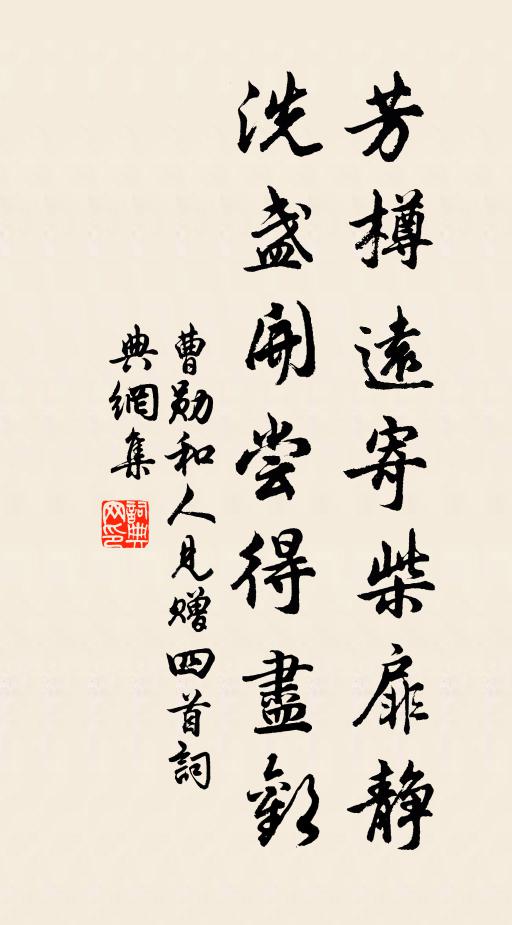 芳樽遠寄柴扉静
洗盞開尝得盡歡
曹勛和人見赠四首詞
典網集
詞典
网印